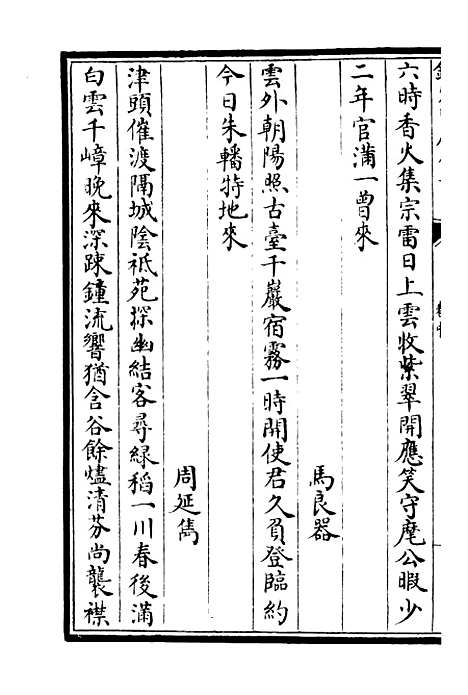 六時香火集宗雷日上雲收紫翠開應笑守麾公暇少
二年官滿一曾來
馬良器
雲外朝陽照古臺千巖宿霧一時開使君久負登臨約
今日朱轓特地來
周延雋
津頭催渡隔城陰祗苑探幽結客尋綠稻一川春後滿
白雲千嶂晚來深踈鐘流響猶含谷餘燼清芬尚襲襟